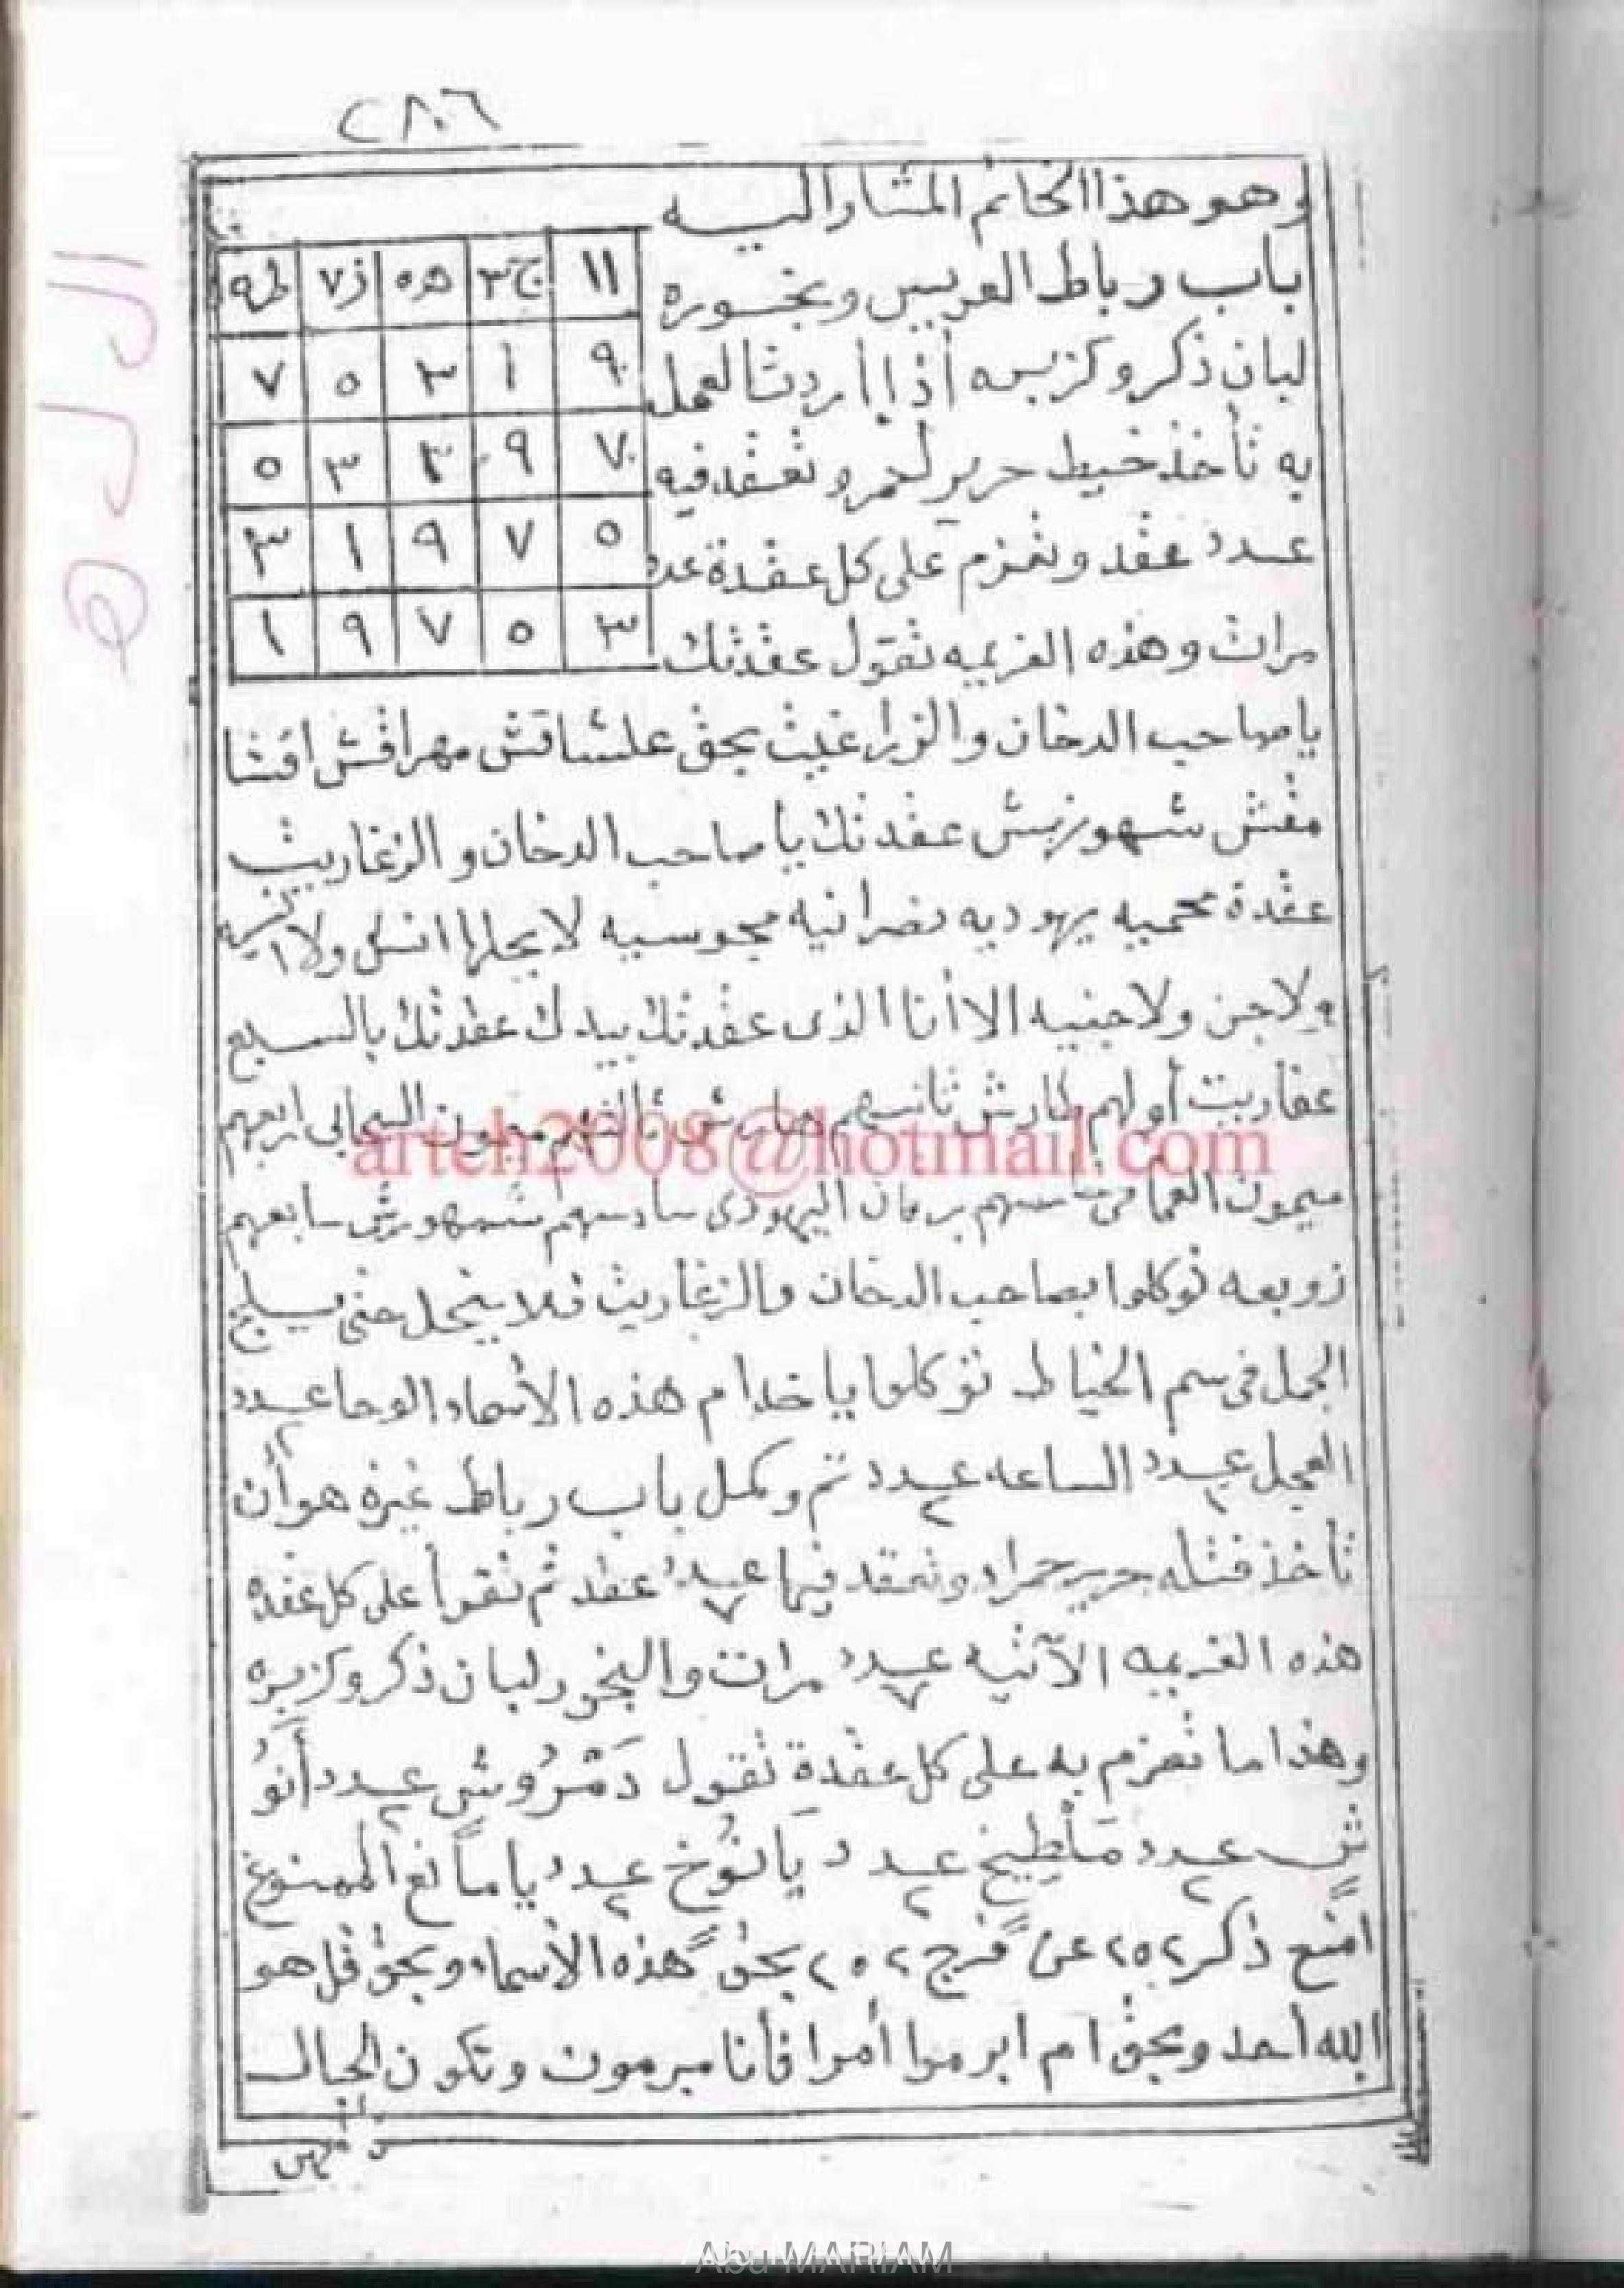 ٢٨٠٦
وهو هذا الخاتم المشار اليه
باب رباط العريس وبخوره
لبان ذكر وكزبسه أذا أردت العمل
به تأخذ خيط حرير احمر وتعقد فيه
عدد عقد وتعزم على كل عقدة عدد
مرات وهذه العزيمه تقول عقدتك
١١ ج٣ هـ٥ ز٧ ط٩
٩ ١ ٣ ٥ ٧
٧ ٩ ٣ ٣ ٥
٥ ٧ ٩ ١ ٣
٣ ٥ ٧ ٩ ١
يا صاحب الدخان والزراغيث بحق علشاقش مهراقش اقشا
مقش شهورنبش عقدتك يا صاحب الدخان والزغاريت
عقدة محميه يهوديه نصرانيه مجوسيه لا يحلها انسى ولا
ولا جن ولا جنيه الا أنا الذى عقدتك بيدك عقدتك بالسبع
عفاريت أولهم طارش ثانيهم ثالثهم ميمون السحابى
ميمون اليهودى سادسهم شمهورش سابعهم
زوبعه توكلوا بصاحب الدخان والزغاريت فلا ينحل حتى يسلج
الجمل فى سم الخياط توكلوا يا خدام هذه الأسماء الوحا عدد ٢
العجل عدد ٢ الساعه عدد ٢ تم وكمل باب رباط غيره هو أن
تأخذ فتله حرير حمراء وتعقد فيها عدد ٧ عقد ثم تقرأ على كل عقده
هذه العزيمه الآتيه عدد ٧ مرات والبخور لبان ذكر وكزبره
وهذا ما تعزم به على كل عقدة تقول دَمْرُوش عدد ٢ أنُو
ش عدد ٢ مَلْطِيخ عدد ٢ يَانُوخ عدد ٢ يا مانع الممنوع
امنع ذكر ٢٥٢ عن فرج ٢٥٢ بحق هذه الأسماء وبحق قل هو
الله أحد وبحق ام ابرموا أمرا فأنا مبرمون وتكون الجبال
arteh2008@hotmail.com
Abu MARIAM